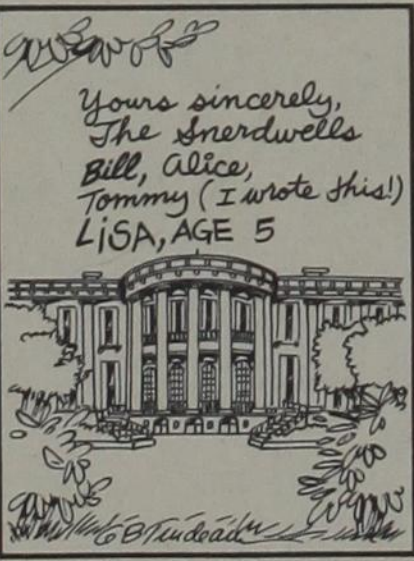 Yours sincerely,
The Snerdwells
Bill, Alice,
Tommy (I wrote this!)
LiSA, AGE 5
GBTrudeau